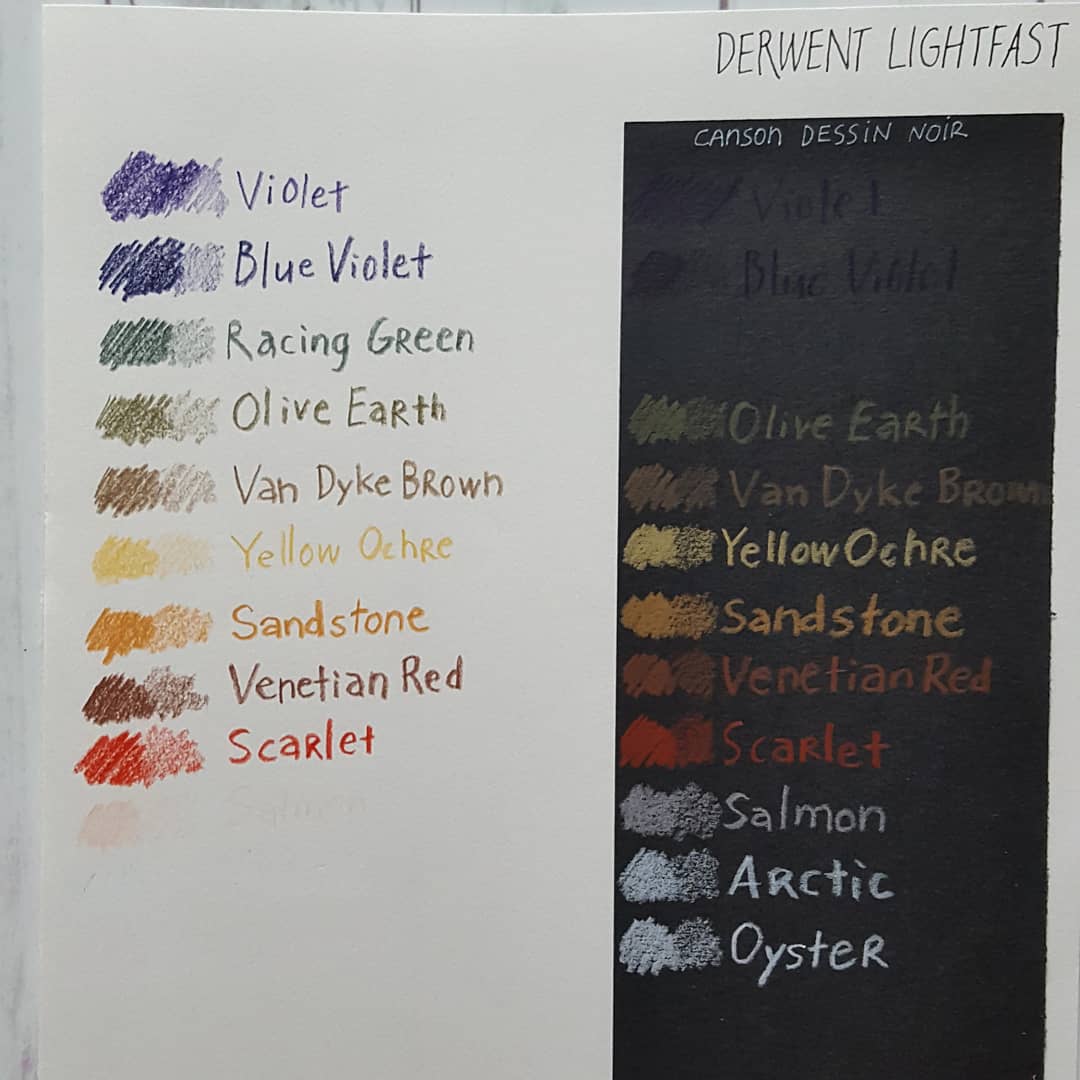 DERWENT LIGHTFAST
Violet
Blue Violet
Racing Green
Olive Earth
Van Dyke Brown
Yellow Ochre
Sandstone
Venetian Red
Scarlet
Salmon
Canson Dessin Noir
Violet
Blue Violet
Olive Earth
Van Dyke Brown
Yellow Ochre
Sandstone
Venetian Red
Scarlet
Salmon
Arctic
Oyster